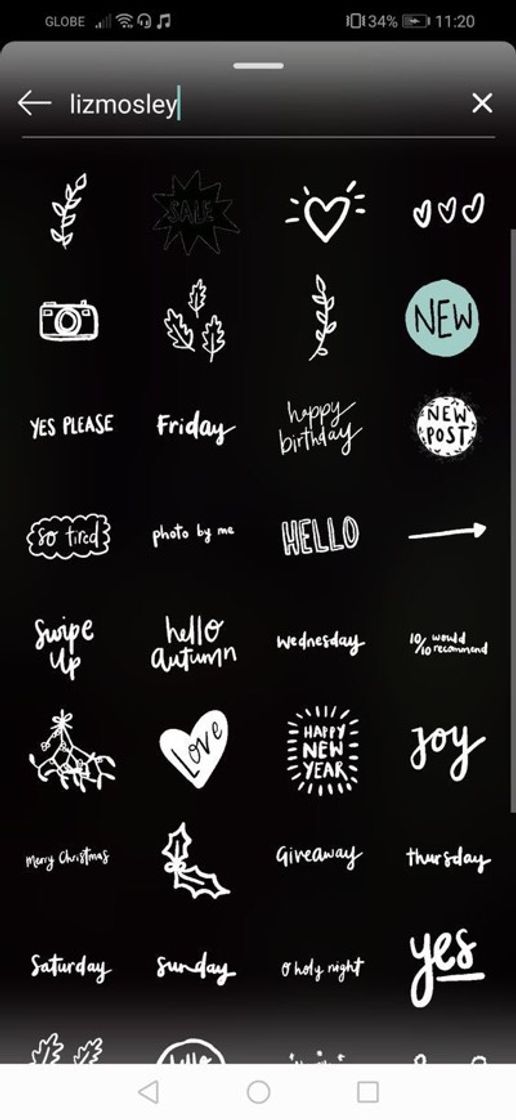 GLOBE 34% 11:20
lizmosley
SALE
NEW
YES PLEASE
Friday
happy
birthday
NEW
POST
so tired
photo by me
HELLO
Swipe
Up
hello
autumn
wednesday
10/10 would
recommend
Love
HAPPY
NEW
YEAR
Joy
Merry Christmas
Giveaway
thursday
Saturday
sunday
o holy night
yes
hello